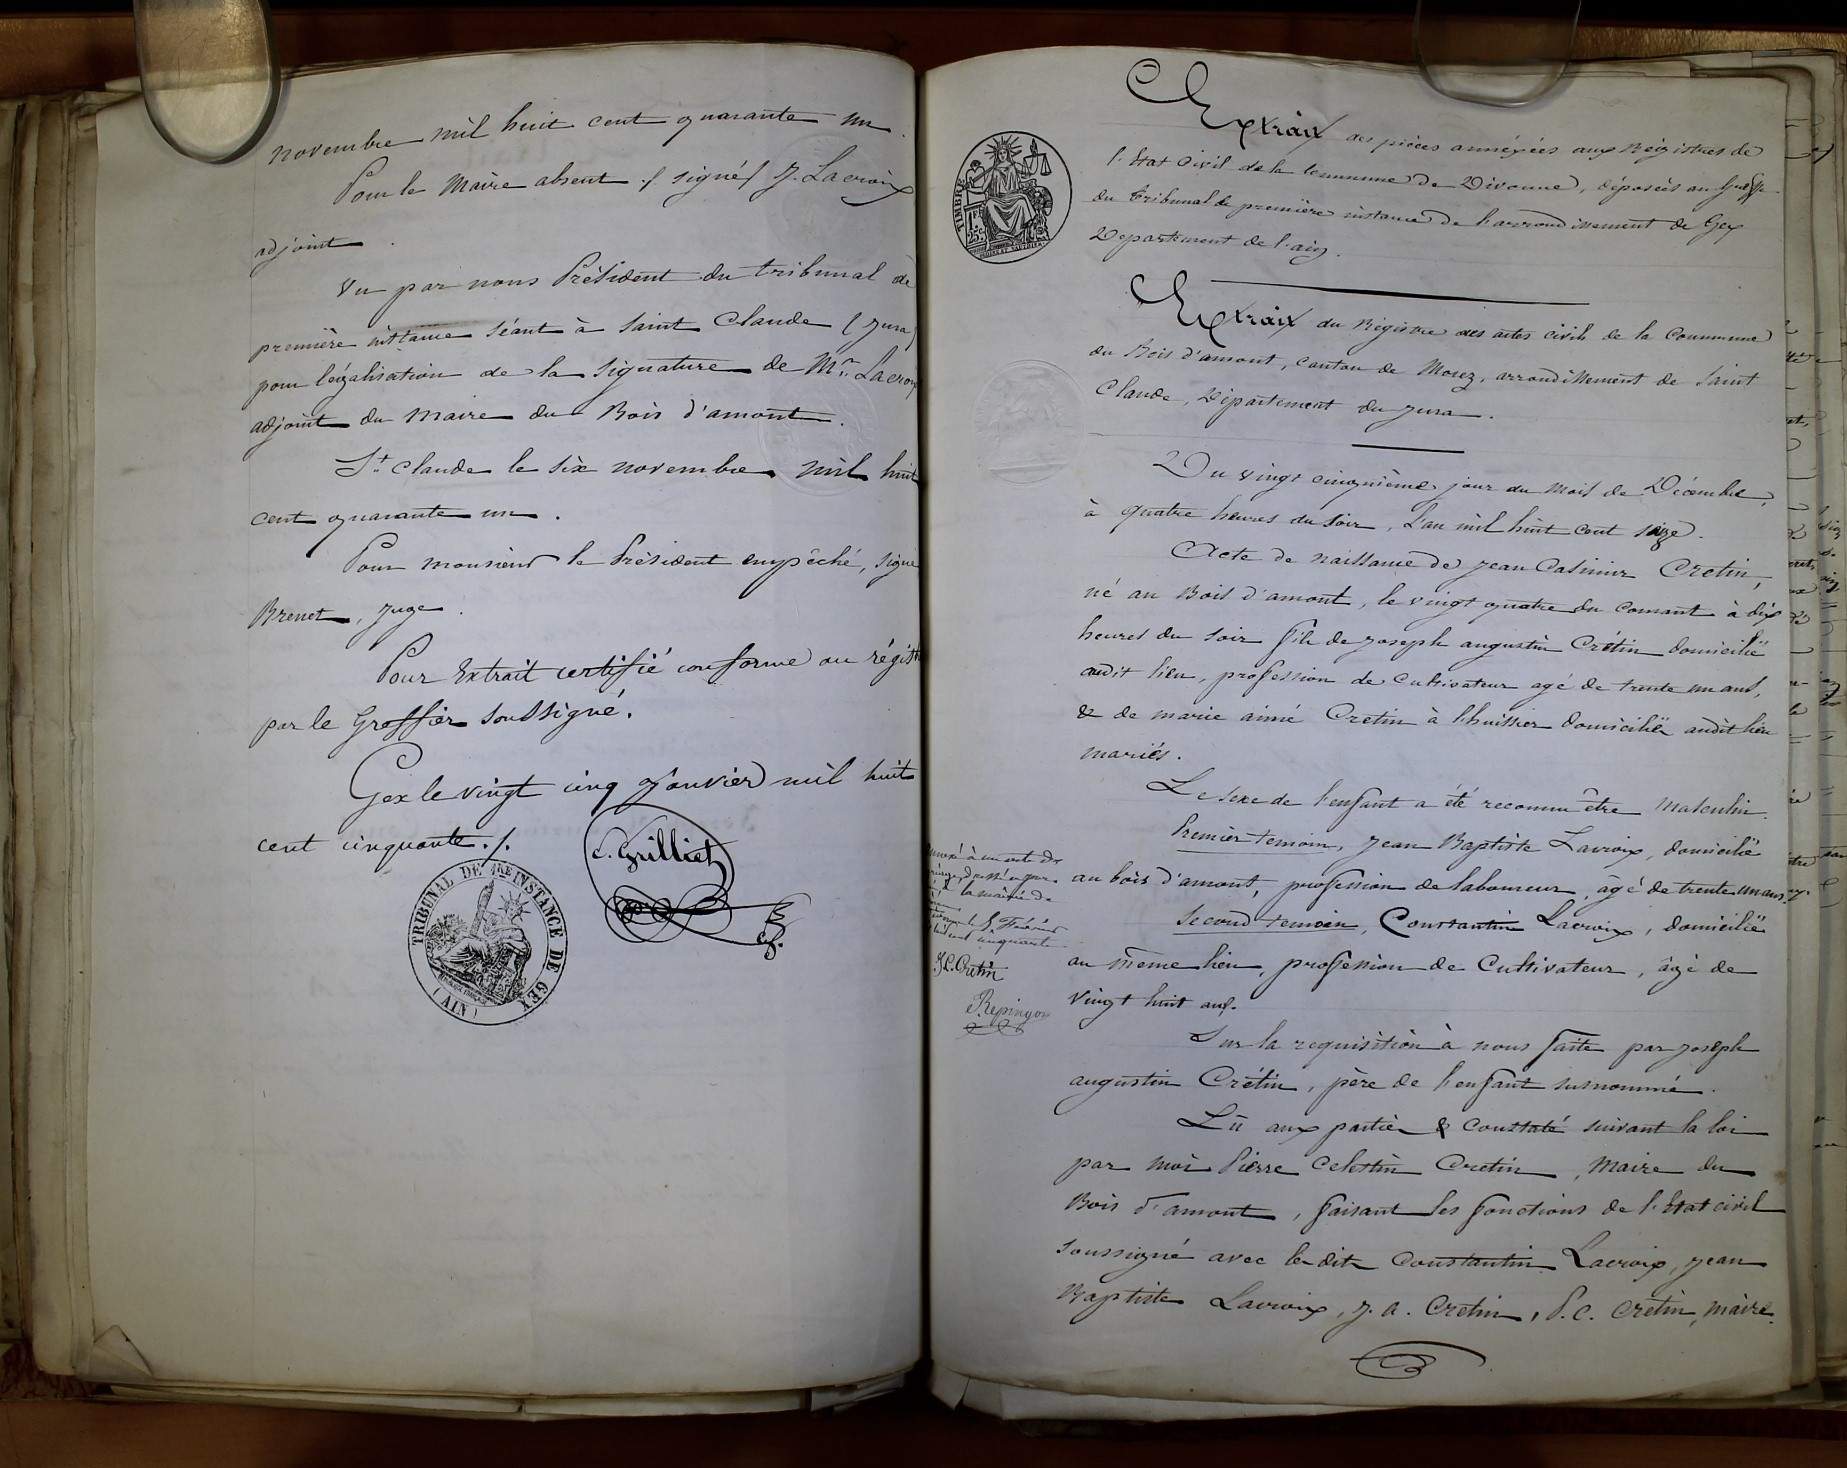 novembre mil huit cent quarante un.
Pour le Maire absent. / signé / J. Lacroix
adjoint.
Vu par nous Président du tribunal de
première instance séant à Saint Claude (Jura)
pour légalisation de la signature de Mr. Lacroix
adjoint du maire du Bois d'amont.
St. Claude le six novembre mil huit
cent quarante un.
Pour monsieur le Président empêché, signé
Brenet, Juge.
Pour Extrait certifié conforme au régist
par le Greffier soussigné.
Gex le vingt cinq Janvier mil huit
cent cinquante./.
C. Grilliet
TRIBUNAL DE 1RE INSTANCE DE GEX
(AIN)
TIMBRE
1F
25c
Extrait des pièces annéxées aux Régistres de
l'Etat Civil de la Commune de Divonne, déposées au Greffe
du Tribunal de première instance de l'arrondissement de Gex
Département de l'ain.
Extrait du Régistre des actes civils de la Commune
du Bois d'amont, canton de Morez, arrondissement de Saint
Claude, Département du Jura.
Du vingt cinquième jour du mois de Décembre,
à quatre heures du soir, L'an mil huit cent seize.
Acte de naissance de Jean Casimir Cretin,
né au Bois d'amont, le vingt quatre du courant à dix
heures du soir fils de Joseph augustin Crétin domicilié
audit lieu, profession de Cultivateur agé de trente un ans,
& de marie aimé Cretin à l'huissier domiciliée audit lieu
mariés.
Le sexe de l'enfant a été reconnu être masculin.
Premier temoin, Jean Baptiste Lacroix, domicilié
au bois d'amont, profession de laboureur, âgé de trente un ans.
Second temoin, Constantin Lacroix, domicilié
au même lieu, profession de Cultivateur, âgé de
vingt huit ans.
Sur la requisition à nous faite par Joseph
augustin Crétin, père de l'enfant susnommé.
Lû aux parties & constaté suivant la loi
par moi Pierre Celestin Cretin, Maire du
Bois d'amont, faisant les fonctions de l'Etat civil
soussigné avec le dit Constantin Lacroix, Jean
Baptiste Lacroix, J. A. Cretin, P. C. Crétin, maire.
à un acte de
la mairie de
le 5 Février
cent cinquante
J C. Cretin
Repingon